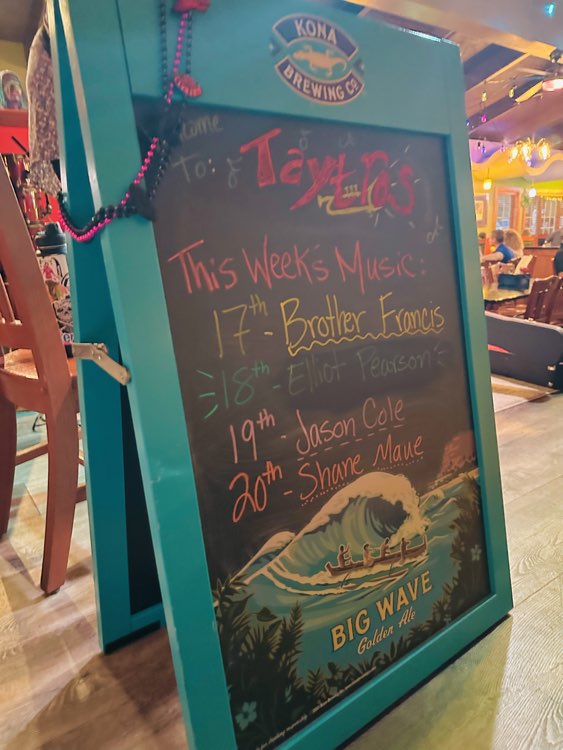 KONA
BREWING CO
To:
Taytros
This Week's Music:
17th - Brother Francis
18th - Elliot Pearson
19th - Jason Cole
20th - Shane Maue
BIG WAVE
Golden Ale